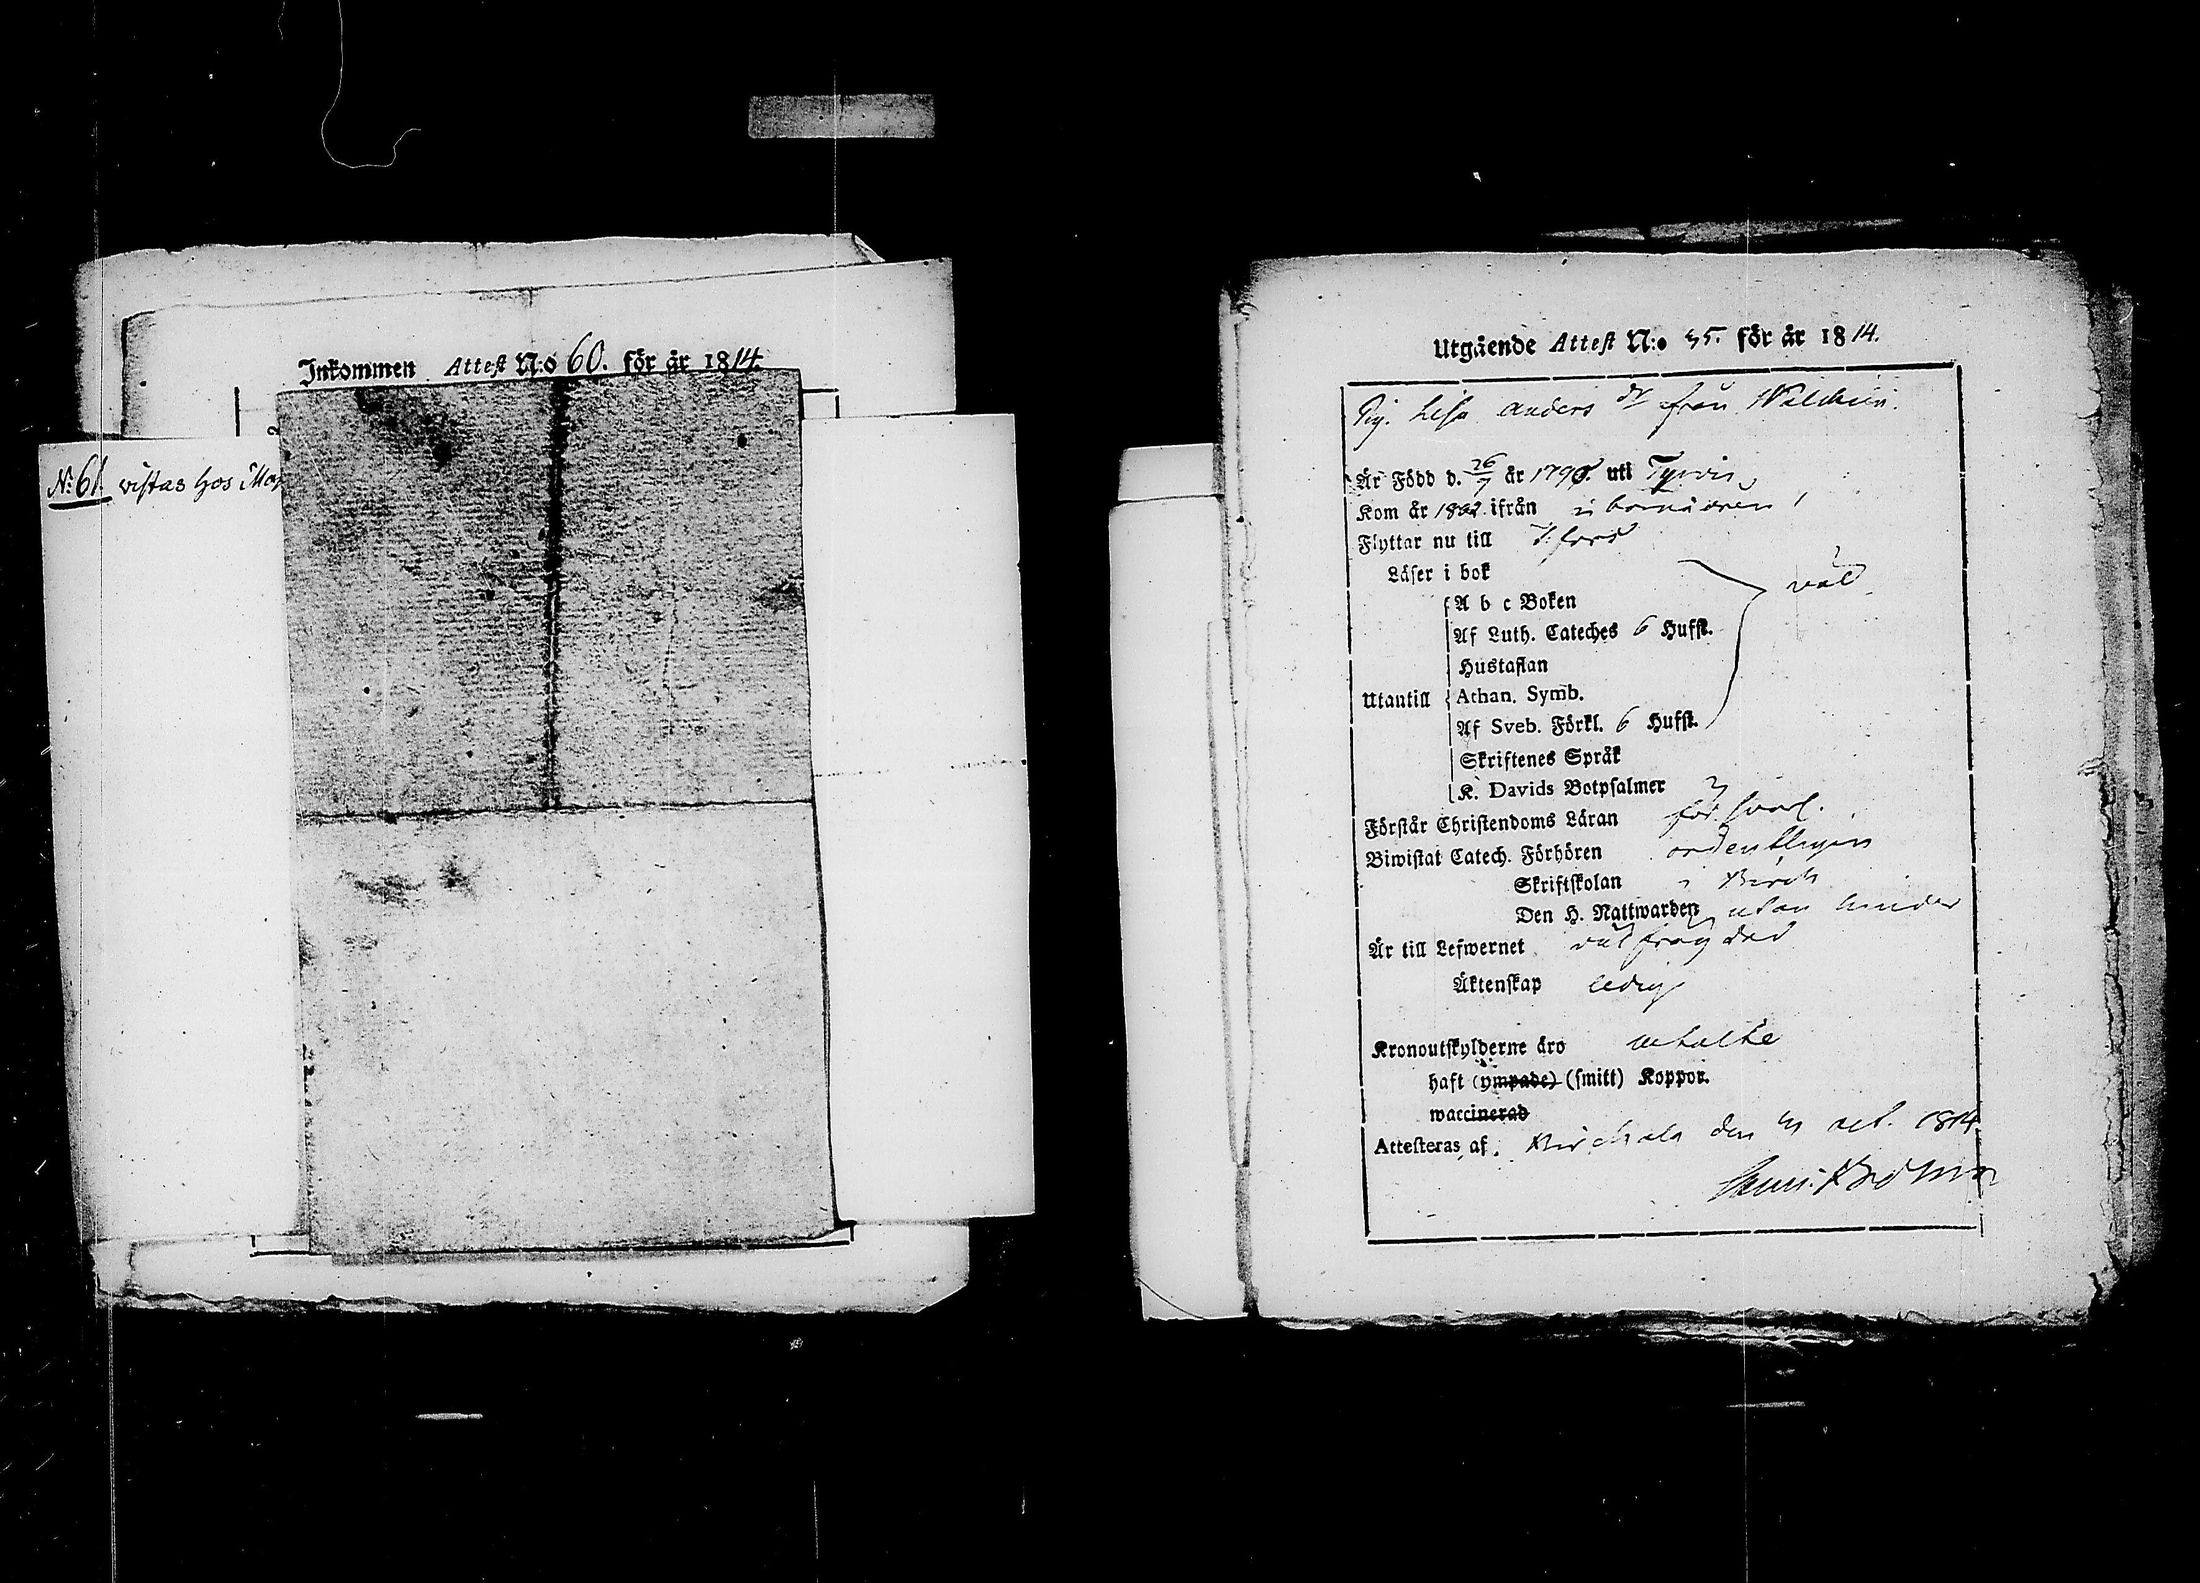 Inkommen Attest N:o 60. för år 1814.
N:61. vistas hos
Utgående Attest N:o 35. för år 1814.
Pig. Lisa Anders dr från
Är Född d. 26/7 år 1790. uti Tyrvis
Kom år 1802 ifrån
Flyttar nu till
Läser i bok
väl
A b c Boken
Af Luth. Cateches 6 Hufst.
Hustaflan
Utantill Athan. Symb.
Af Sveb. Förkl. 6 Hufst.
Skriftenes Språk
K. Davids Botpsalmer
Förstår Christendoms Läran försvarl.
Biwistat Catech. Förhören ordentligen
Skriftskolan
Den H. Nattwarden utan hinder
Är till Lefwernet väl frägdad
Äktenskap ledig
Kronoutskylderne äro betalte
haft (ympade) (smitt) Koppor.
waccinerad
Attesteras af. Birchala den oct. 1814